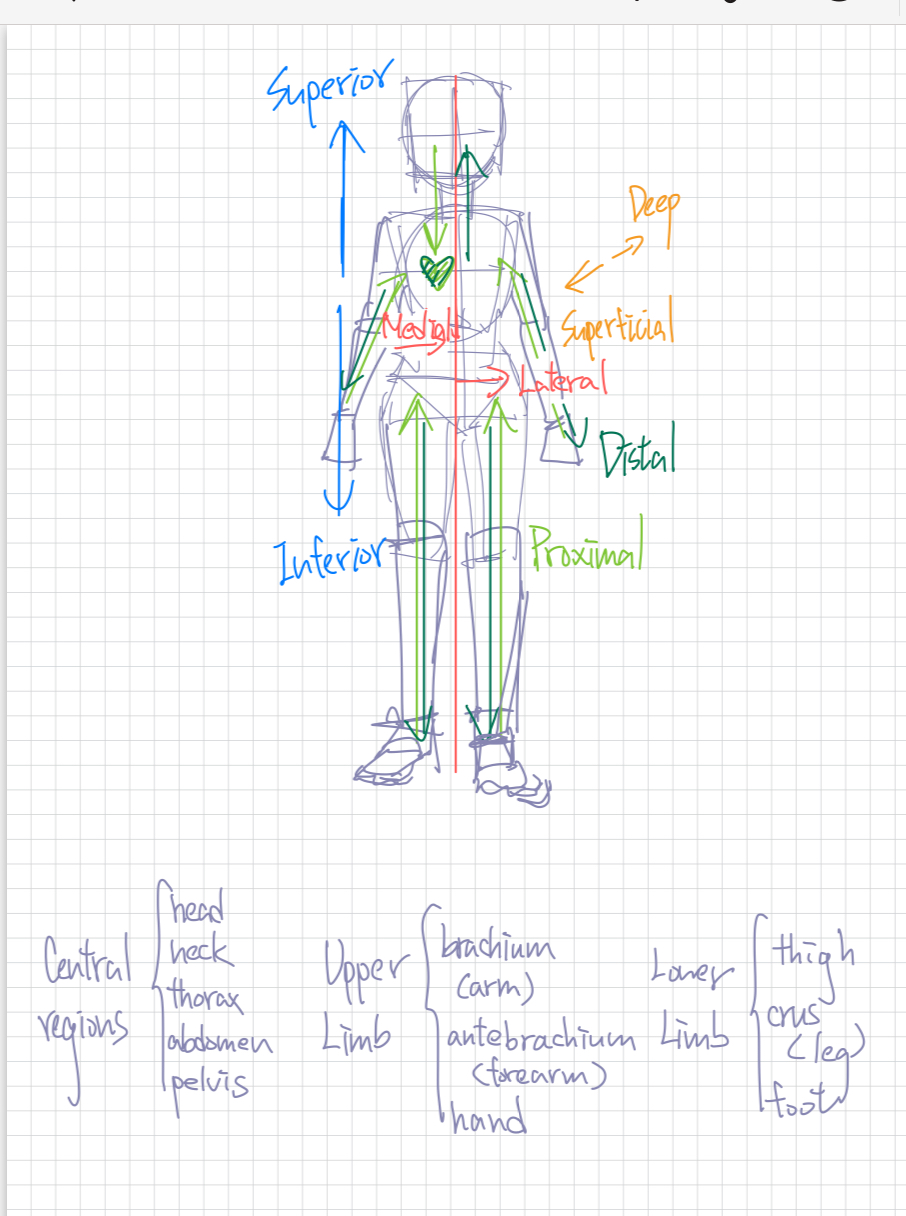 Superior
Deep
Superficial
Medial
Lateral
Distal
Inferior
Proximal
Central
regions
head
neck
thorax
abdomen
pelvis
Upper
Limb
brachium
(arm)
antebrachium
(forearm)
hand
Lower
Limb
thigh
crus
(leg)
foot